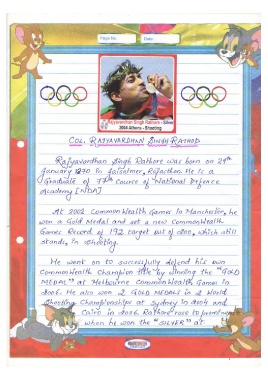 Page No. Date:
Rajyavardhan Singh Rathore - Silver
2004 Athens - Shooting
COL. RAJYAVARDHAN SINGH RATHOD
Rajyavardhan Singh Rathore was born on 29th
January 1970 in Jaisalmer, Rajasthan. He is a
Graduate of 77th Course of "National Defence
Academy [NDA]
At 2002 CommonWealth Games in Manchester, he
won a Gold Medal and set a new CommonWealth
Games Record of 192 target out of 200, which still
stands, in shooting.
He went on to successfully defend his own
CommonWealth Champion title by winning the "GOLD
MEDAL" at Melbourne CommonWealth Games in
2006. He also won 2 GOLD MEDALS in 2 World
Shooting Championships at Sydney in 2004 and
Cairo in 2006. Rathore rose to
when he won the "SILVER" at